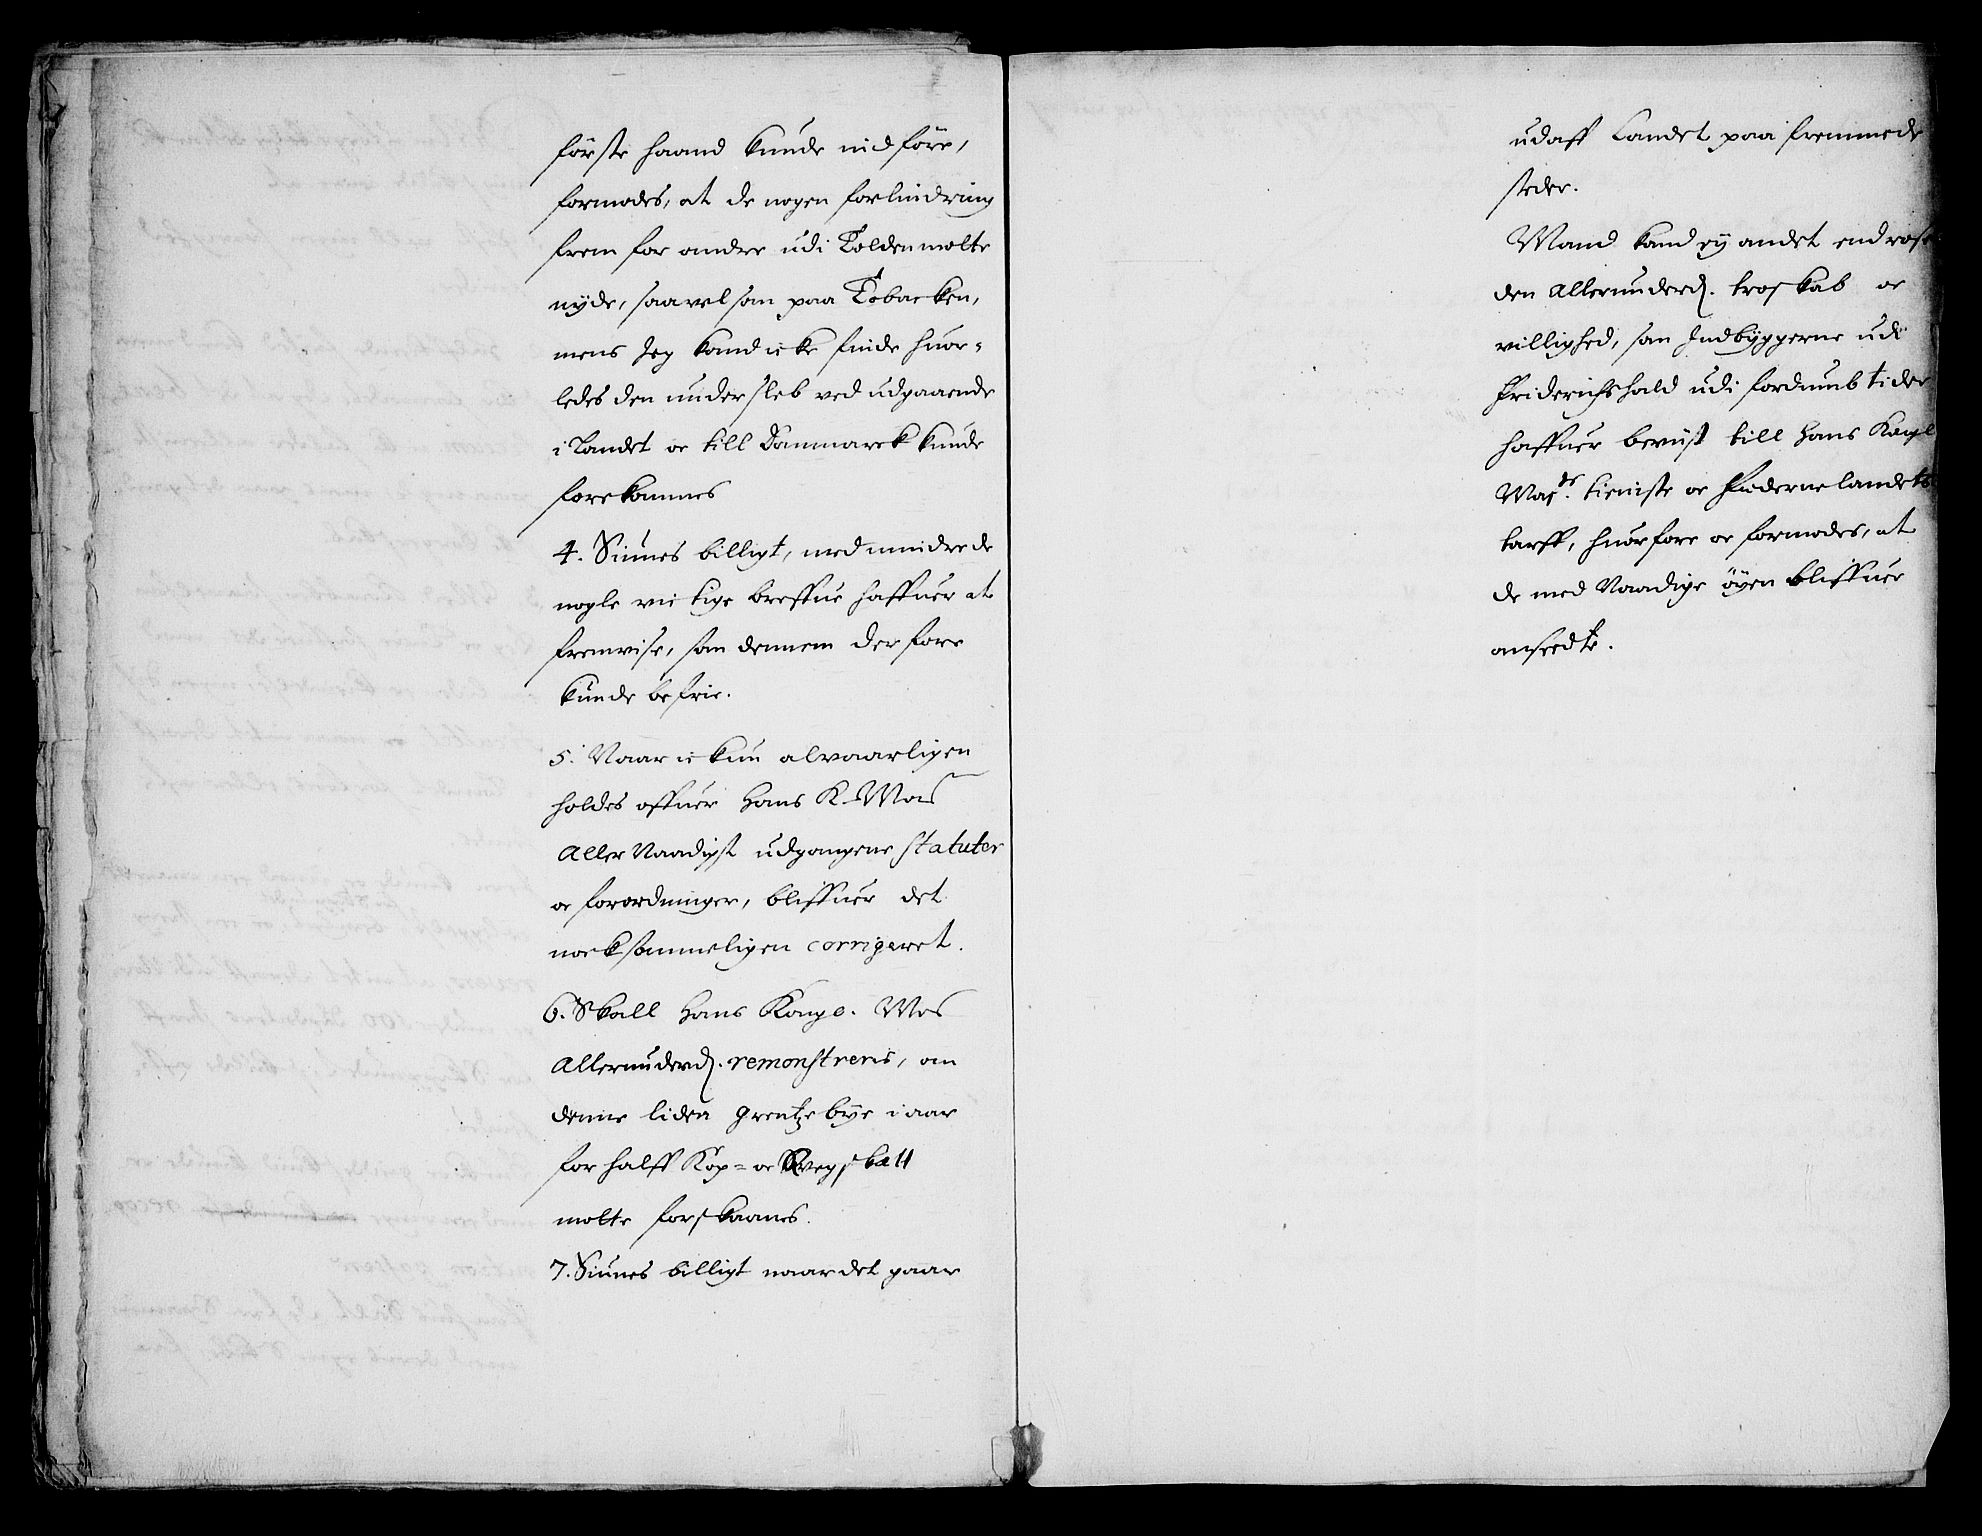 förste haand kunde indföre,
formodes, at de nogen forlindring
frem for andre udi Tolden motte
nyde, saavel som paa Tobacken,
mens Jeg kand icke finde huor-
ledes den undersleb ved udgaaende
i Landet oc till Danmarck kunde
forekommes
4. Siunes billigt, med mindre de
nogle victige breffue haffuer at
fremvise, som dennem derfore
kunde befrie.
5. Naar ickun alvaarligen
holdes offuer Hans K. Mas
Aller Naadigst udgangene statuter
oc forordninger, bliffuer det
nocksommeligen corrigeret.
6. Skall Hans Kongl. Mas
Allerunderd. remonstreris, om
denne liden grentze bye i aar
for halff Kop- oc Qvegskatt
motte forskaanes.
7. Siunes billigt naar det gaar
udaff Landet paa fremmede
steder.
Mand kand ey andet end rose
den Allerunderd. troskab oc
villighed, som Indbyggerne udi
Friderichshald udi fordumb tider
haffuer beviist till Hans Kongl
Mas.ds tieniste oc Fædernelandets
tarff, huorfore oc formodes, at
de med Naadige öyen bliffuer
anseedte.